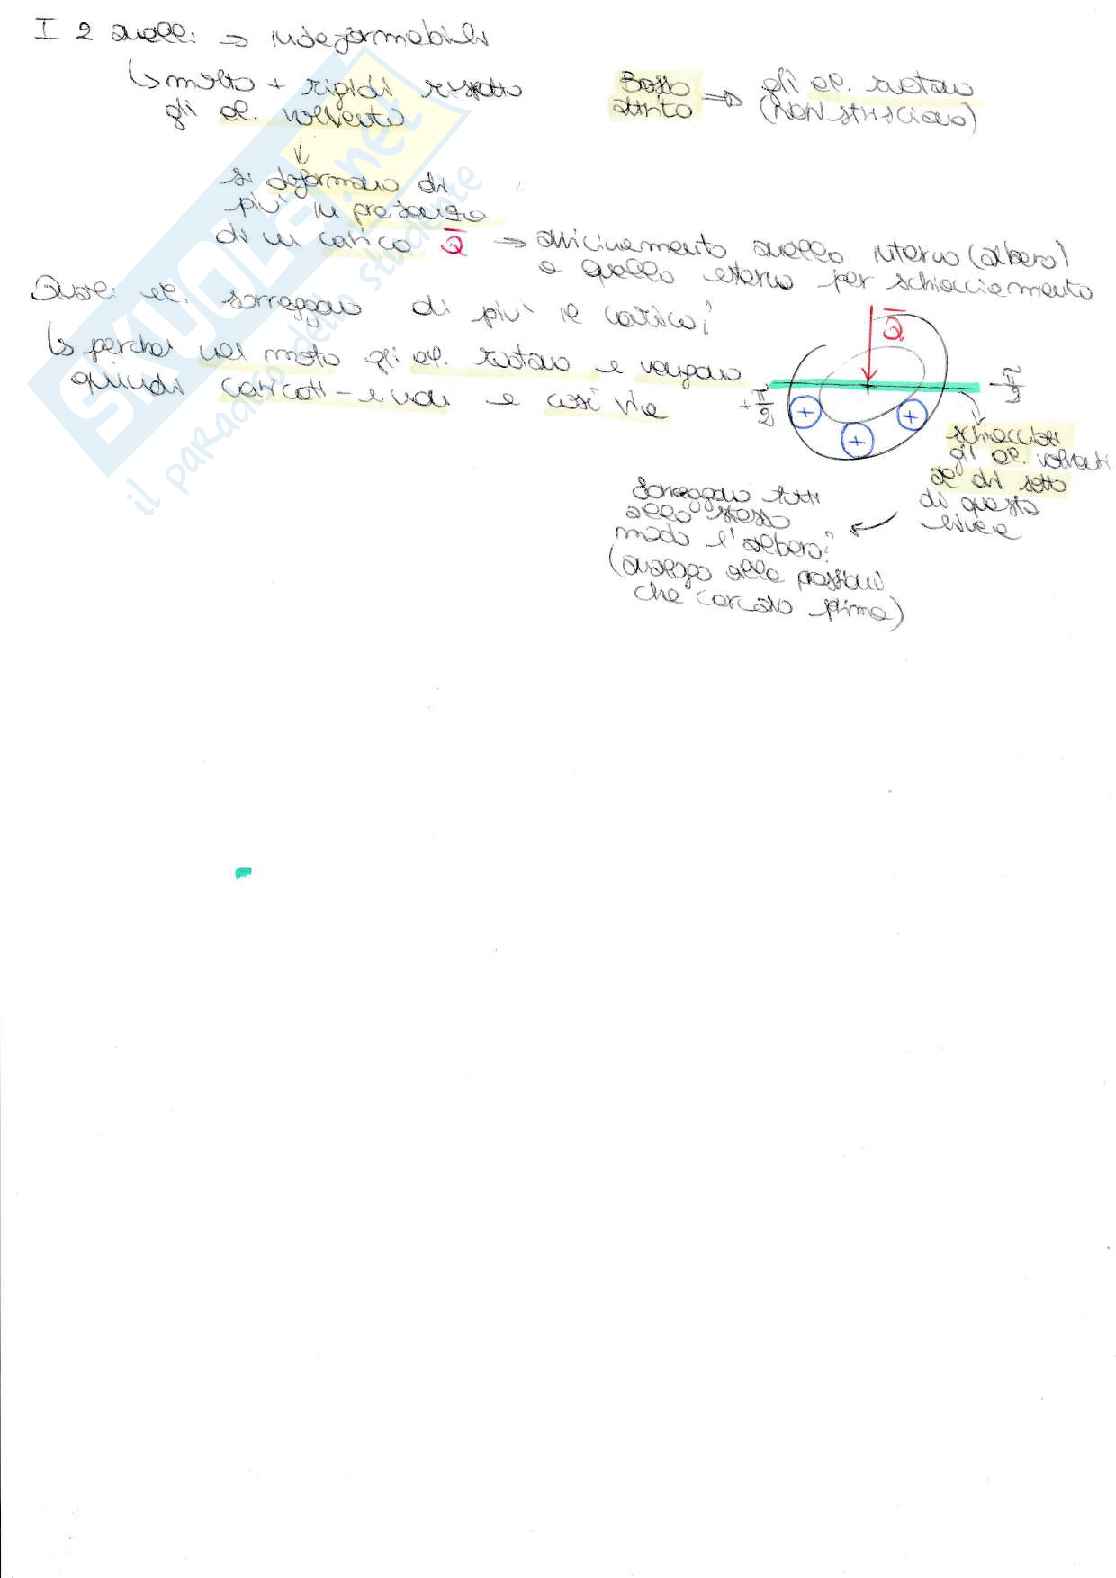 I 2 anelli ⇒ indeformabili
↳ molto + rigidi rispetto
gli el. volvento
↓
si deformano di
più in presenza
di un carico Q̅ → avvicinamento anello interno (albero)
a quello esterno per schiacciamento
Basso
attrito ⇒ gli el. ruotano
(NON strisciano)
Quali el. sorreggono di più il carico?
↳ perché nel moto gli el. ruotano e vengono
quindi caricati - e non e così via
Q̅
+ π/2
- π/2
+ + +
schiacciati
gli el. volventi
al di sotto
di questa
linea
Sorreggono tutti
allo stesso
modo l'albero?
(analogo alla pressione
che cercato prima)
SKUOLA.net
il paradiso dello studente